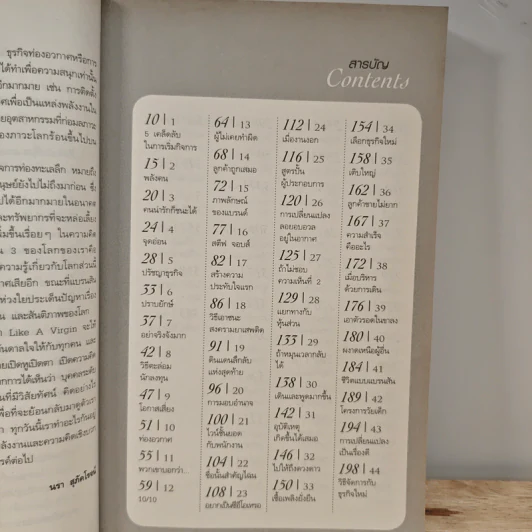 ธุรกิจท่องอวกาศหรือการ
ได้ทำเพื่อความสนุกเท่านั้น
อีกมากมาย เช่น การติดตั้ง
เพื่อเป็นแหล่งพลังงานใน
อุตสาหกรรมที่ก่อมลภาวะ
องภาวะโลกร้อนขึ้นไปบน
การท่องทะเลลึก หมายถึง
นุษย์ยังไปไม่ถึงมาก่อน ซึ่ง
ได้อีกมากมายในอนาคต
และทรัพยากรที่จะหล่อเลี้ยง
มขึ้นเรื่อยๆ ในความคิด
3 ของโลกของเราคือ
ความรู้เกี่ยวกับโลกส่วนนี้
Like A Virgin จะได้
นรา สุภัคโรจน์
สารบัญ
Contents
10 | 1
6 เคล็ดลับ
ในการเริ่มกิจการ
15 | 2
พลังคน
20 | 3
คนน่ารักก็ชนะได้
24 | 4
จุดอ่อน
28 | 5
ปรัชญาธุรกิจ
33 | 6
ปราบยักษ์
37 | 7
อย่าจริงจังมาก
42 | 8
วิธีตะล่อม
นักลงทุน
47 | 9
โอกาสเสี่ยง
51 | 10
ท่องอวกาศ
55 | 11
พวกเขาบอกว่า...
59 | 12
10/10
64 | 13
ผู้ไม่เคยทำผิด
68 | 14
ลูกค้าถูกเสมอ
72 | 15
ภาพลักษณ์
ของแบรนด์
77 | 16
สตีฟ จอบส์
82 | 17
สร้างความ
ประทับใจแรก
86 | 18
วิธีเอาชนะ
สงครามยาเสพติด
91 | 19
ดินแดนลึกลับ
แห่งสุดท้าย
96 | 20
การมอบอำนาจ
100 | 21
ไวน์ชั้นยอด
กับพนักงาน
104 | 22
ชื่อนั้นสำคัญไฉน
108 | 23
อยากเป็นซีอีโอเหรอ
112 | 24
เมื่องานงอก
116 | 25
สูตรปั้น
ผู้ประกอบการ
120 | 26
การเปลี่ยนแปลง
ลอยอบอวล
อยู่ในอากาศ
125 | 27
ถ้าไม่ชอบ
ความเห็นที่ 2
129 | 28
แยกทางกับ
หุ้นส่วน
133 | 29
ถ้าหมุนเวลากลับ
ได้
138 | 30
เดินและพูดมากขึ้น
142 | 31
อุบัติเหตุ
เกิดขึ้นได้เสมอ
146 | 32
ไปให้ถึงดวงดาว
150 | 33
เชื้อเพลิงยั่งยืน
154 | 34
เลือกธุรกิจใหม่
158 | 35
เติบใหญ่
162 | 36
ลูกค้าขายไม่ยาก
167 | 37
ความสำเร็จ
คืออะไร
172 | 38
เมื่อบริหาร
ด้วยการเดิน
176 | 39
เอาตัวรอดในขาลง
180 | 40
ผงาดเหนือผู้อื่น
184 | 41
ชีวิตแบบแบรนสัน
189 | 42
โครงการวัยเด็ก
194 | 43
การเปลี่ยนแปลง
เป็นเรื่องดี
198 | 44
วิธีจัดการกับ
ธุรกิจใหม่